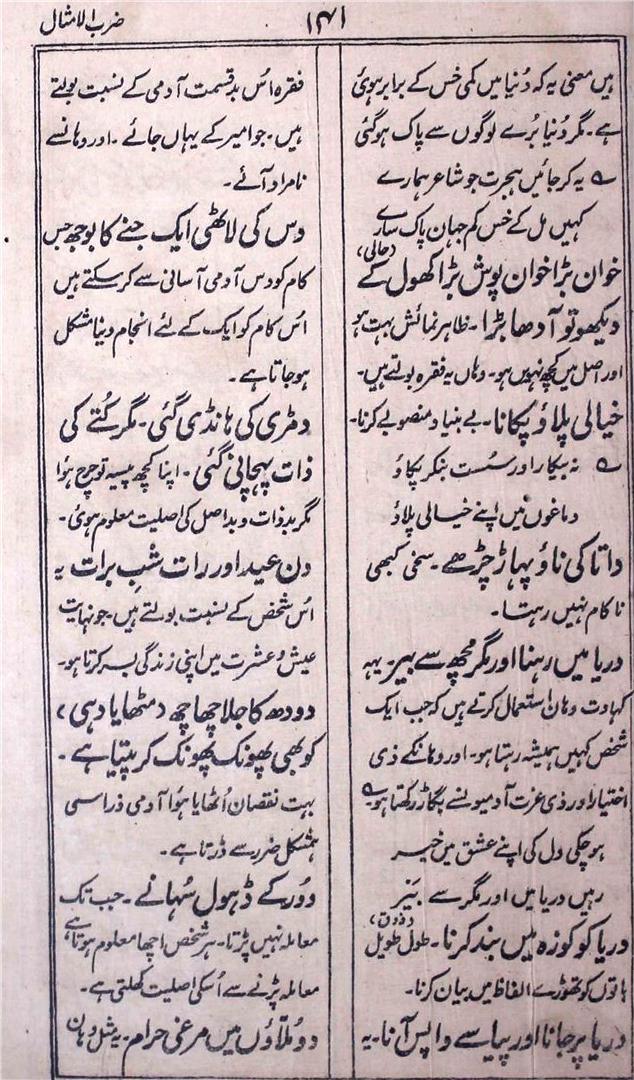 ضرب الامثال
۱۴۱
ہیں معنی یہ کہ دُنیا میں کمی خس کے برابر ہوئی
ہے۔ مگر دُنیا بُرے لوگوں سے پاک ہوگئی
؎ یہ کر جائیں ہجرت جو شاعر ہمارے
کہیں مل کے خس کم جہان پاک سارے
(حالی)
خوان بڑا خوان پوش بڑا کھول کے
دیکھو تو آدھا بڑا۔ ظاہر نمائش بہت ہو
اور اصل میں کچھ نہیں ہو۔ وہاں یہ فقرہ بولتے ہیں۔
خیالی پلاؤ پکانا۔ بے بنیاد منصوبے کرنا۔
؎ نہ بیکار اور سُست بنکر پکاؤ
دماغوں میں اپنے خیالی پلاؤ
داتا کی ناؤ پہاڑ چڑھے۔ سخی کبھی
ناکام نہیں رہتا۔
دریا میں رہنا اور مگر مچھ سے بیر۔ یہہ
کہاوت وہاں استعمال کرتے ہیں کہ جب ایک
شخص کہیں ہمیشہ رہتا ہو۔ اور وہانکے ذی
اختیار اور ذی عزت آدمیونسے بگاڑ رکھتا ہو۔ ؎
ہوچکی دل کی اپنے عشق میں خیر
رہیں دریا میں اور مگر سے بیَر
(ذوق)
دریا کو کوزہ میں بند کرنا۔ طول طویل
باتوں کو تھوڑے الفاظ میں بیان کرنا۔
دریا پر جانا اور پیاسے واپس آنا۔ یہ
فقرہ اُس بدقسمت آدمی کے نسبت بولتے
ہیں۔ جو امیر کے یہاں جائے۔ اور وہانسے
نامراد آئے۔
دس کی لاٹھی ایک جنے کا بوجھ جس
کام کو دس آدمی آسانی سے کرسکتے ہیں
اُس کام کو ایک کے لئے انجام دینا مشکل
ہوجاتا ہے۔
دمڑی کی ہانڈی گئی۔ مگر کُتے کی
ذات پہچانی گئی۔ اپنا کچھ پیسہ تو خرچ ہوُا
مگر بدذات و بداصل کی اصلیت معلوم ہوئی۔
دن عید اور رات شبِ برات یہ
اُس شخص کے نسبت بولتے ہیں۔ جو نہایت
عیش و عشرت میں اپنی زندگی بسر کرتا ہو۔
دودھ کا جلا چھاچھ (مٹھا یا دہی)
کو بھی پھونک پھونک کر پیتا ہے۔
بہت نقصان اُٹھایا ہوُا آدمی ذراسی
مشکل ضرر سے ڈرتا ہے۔
دُور کے ڈہول سُہانے۔ جب تک
معاملہ نہیں پڑتا۔ ہر شخص اچھا معلوم ہوتا ہے
معاملہ پڑنے سے اُسکی اصلیت کھلتی ہے۔
دو ملّاؤں میں مرغی حرام۔ یہ مثل وہان